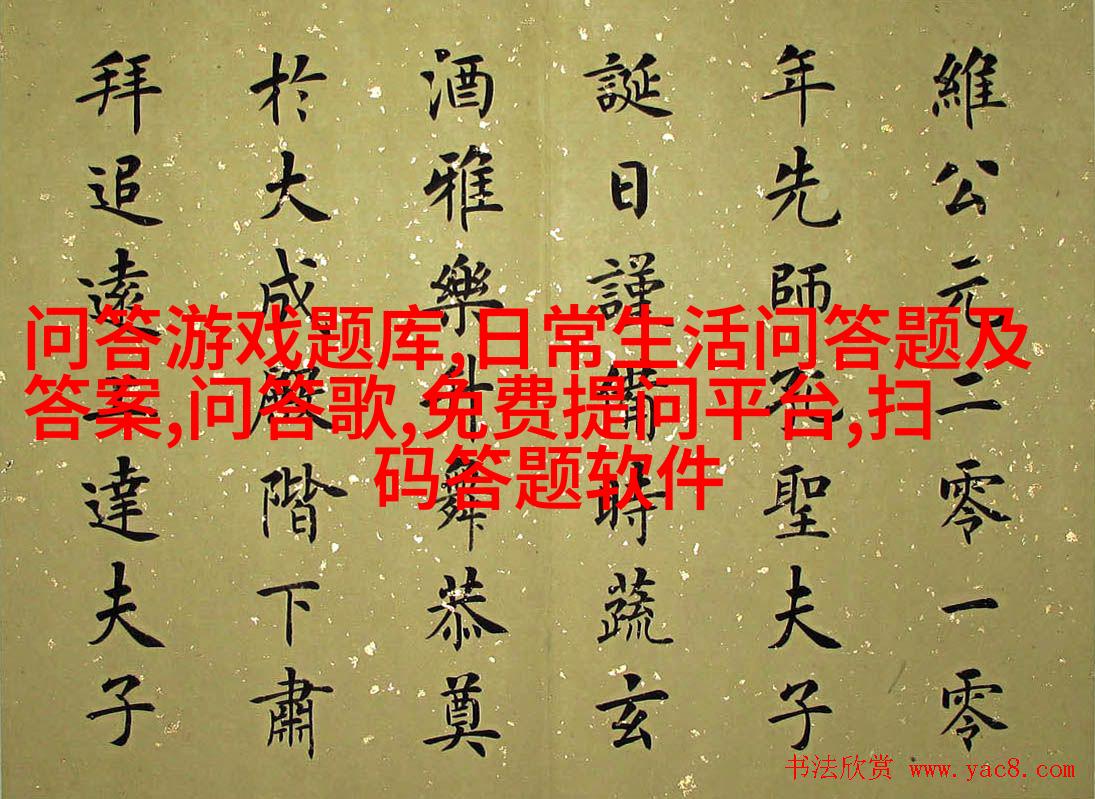 維公元二零一零
年先師孔聖夫子
誕日謹備時蔬玄
酒雅樂升舞恭奠
於大成殿階下肅
拜追逺達夫子
问答游戏题库,日常生活问答题及
答案,问答歌,免费提问平台,扫
码答题软件
书法欣赏 www.yac8.com